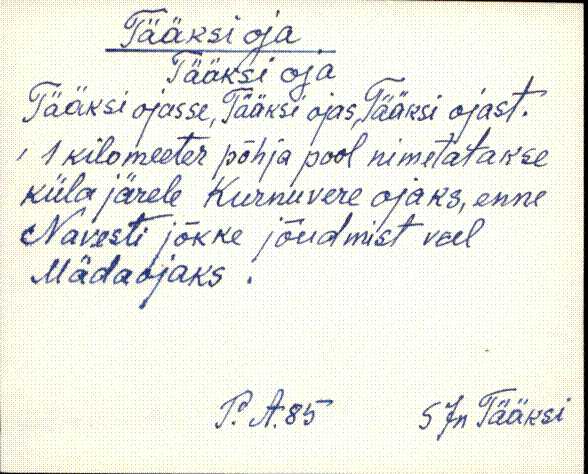 Tääksi oja
Tääksi oja
Tääksi ojasse, Tääksi ojas, Tääksi ojast.
1 kilomeeter põhja pool nimetatakse
küla järele Kurnuvere ojaks, enne
Navesti jõkke jõudmist veel
Mädaojaks.
P. A. 85 SJn Tääksi